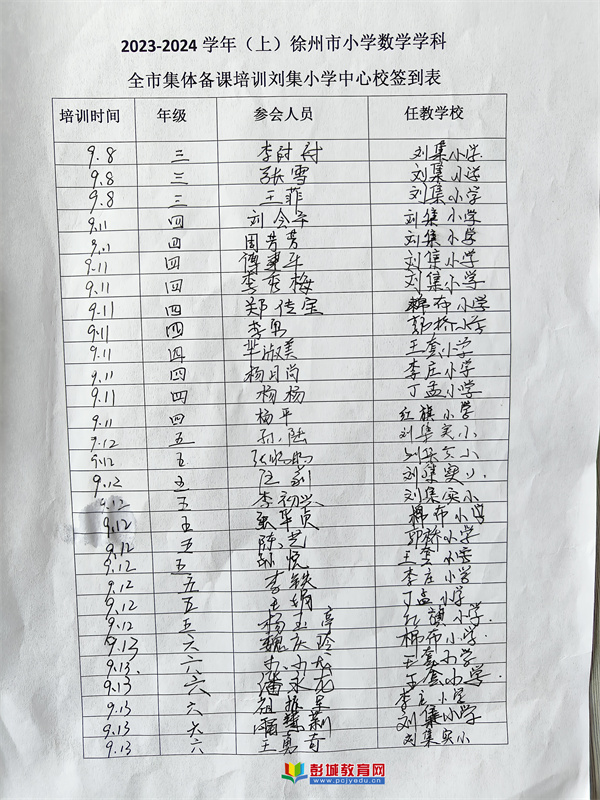 2023-2024 学年（上）徐州市小学数学学科
全市集体备课培训刘集小学中心校签到表
培训时间 年级 参会人员 任教学校
9.8 三 李时付 刘集小学
9.8 三 张雪 刘集小学
9.8 三 王菲 刘集小学
9.11 四 刘会平 刘集小学
9.11 四 周芳芳 刘集小学
9.11 四 傅事平 刘集小学
9.11 四 李秀梅 刘集小学
9.11 四 郑传宝 棉布小学
9.11 四 李勇 郭桥小学
9.11 四 芈淑美 王套小学
9.11 四 杨月尚 李庄小学
9.11 四 杨杨 丁孟小学
9.11 四 杨平 红旗小学
9.12 五 孙陆 刘集实小
9.12 五 张 刘集实小
9.12 五 刘集实小
9.12 五 李初兴 刘集实小
9.12 五 张华贞 棉布小学
9.12 五 陈艺 郭桥小学
9.12 五 孙悦 王套小学
9.12 五 李铁 李庄小学
9.12 五 王娟 丁孟小学
9.12 五 杨玉亭 红旗小学
9.13 六 魏庆玲 棉布小学
9.13 六 王套小学
9.13 六 潘永龙 王套小学
9.13 六 李庄小学
9.13 六 刘集小学
9.13 六 王勇奇 刘集实小
彭城教育网
www.pcjyedu.cn